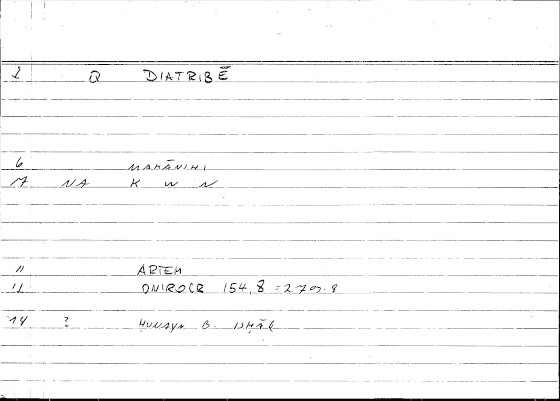 2 Q DIATRIBĒ
6 MAHĀNIHI
17 NA K W N
11 ARTEM
12 ONIROCR 154, 8 = 279.8
14 ? ḤUNAYN B. ISḤĀḲ